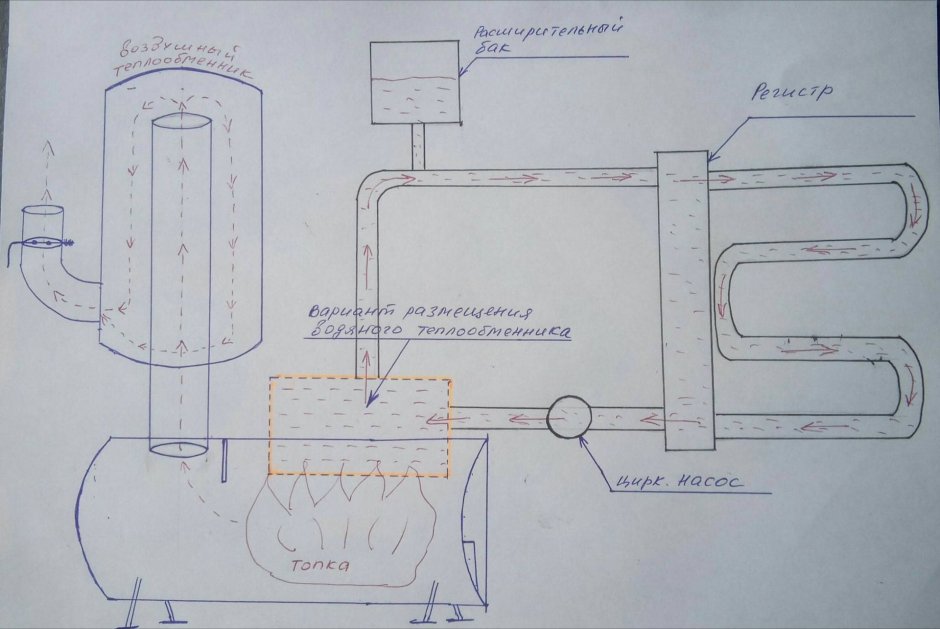 Воздушный
теплообменник
Расширительный
бак
Регистр
Вариант размещения
водяного теплообменника
Цирк. насос
топка